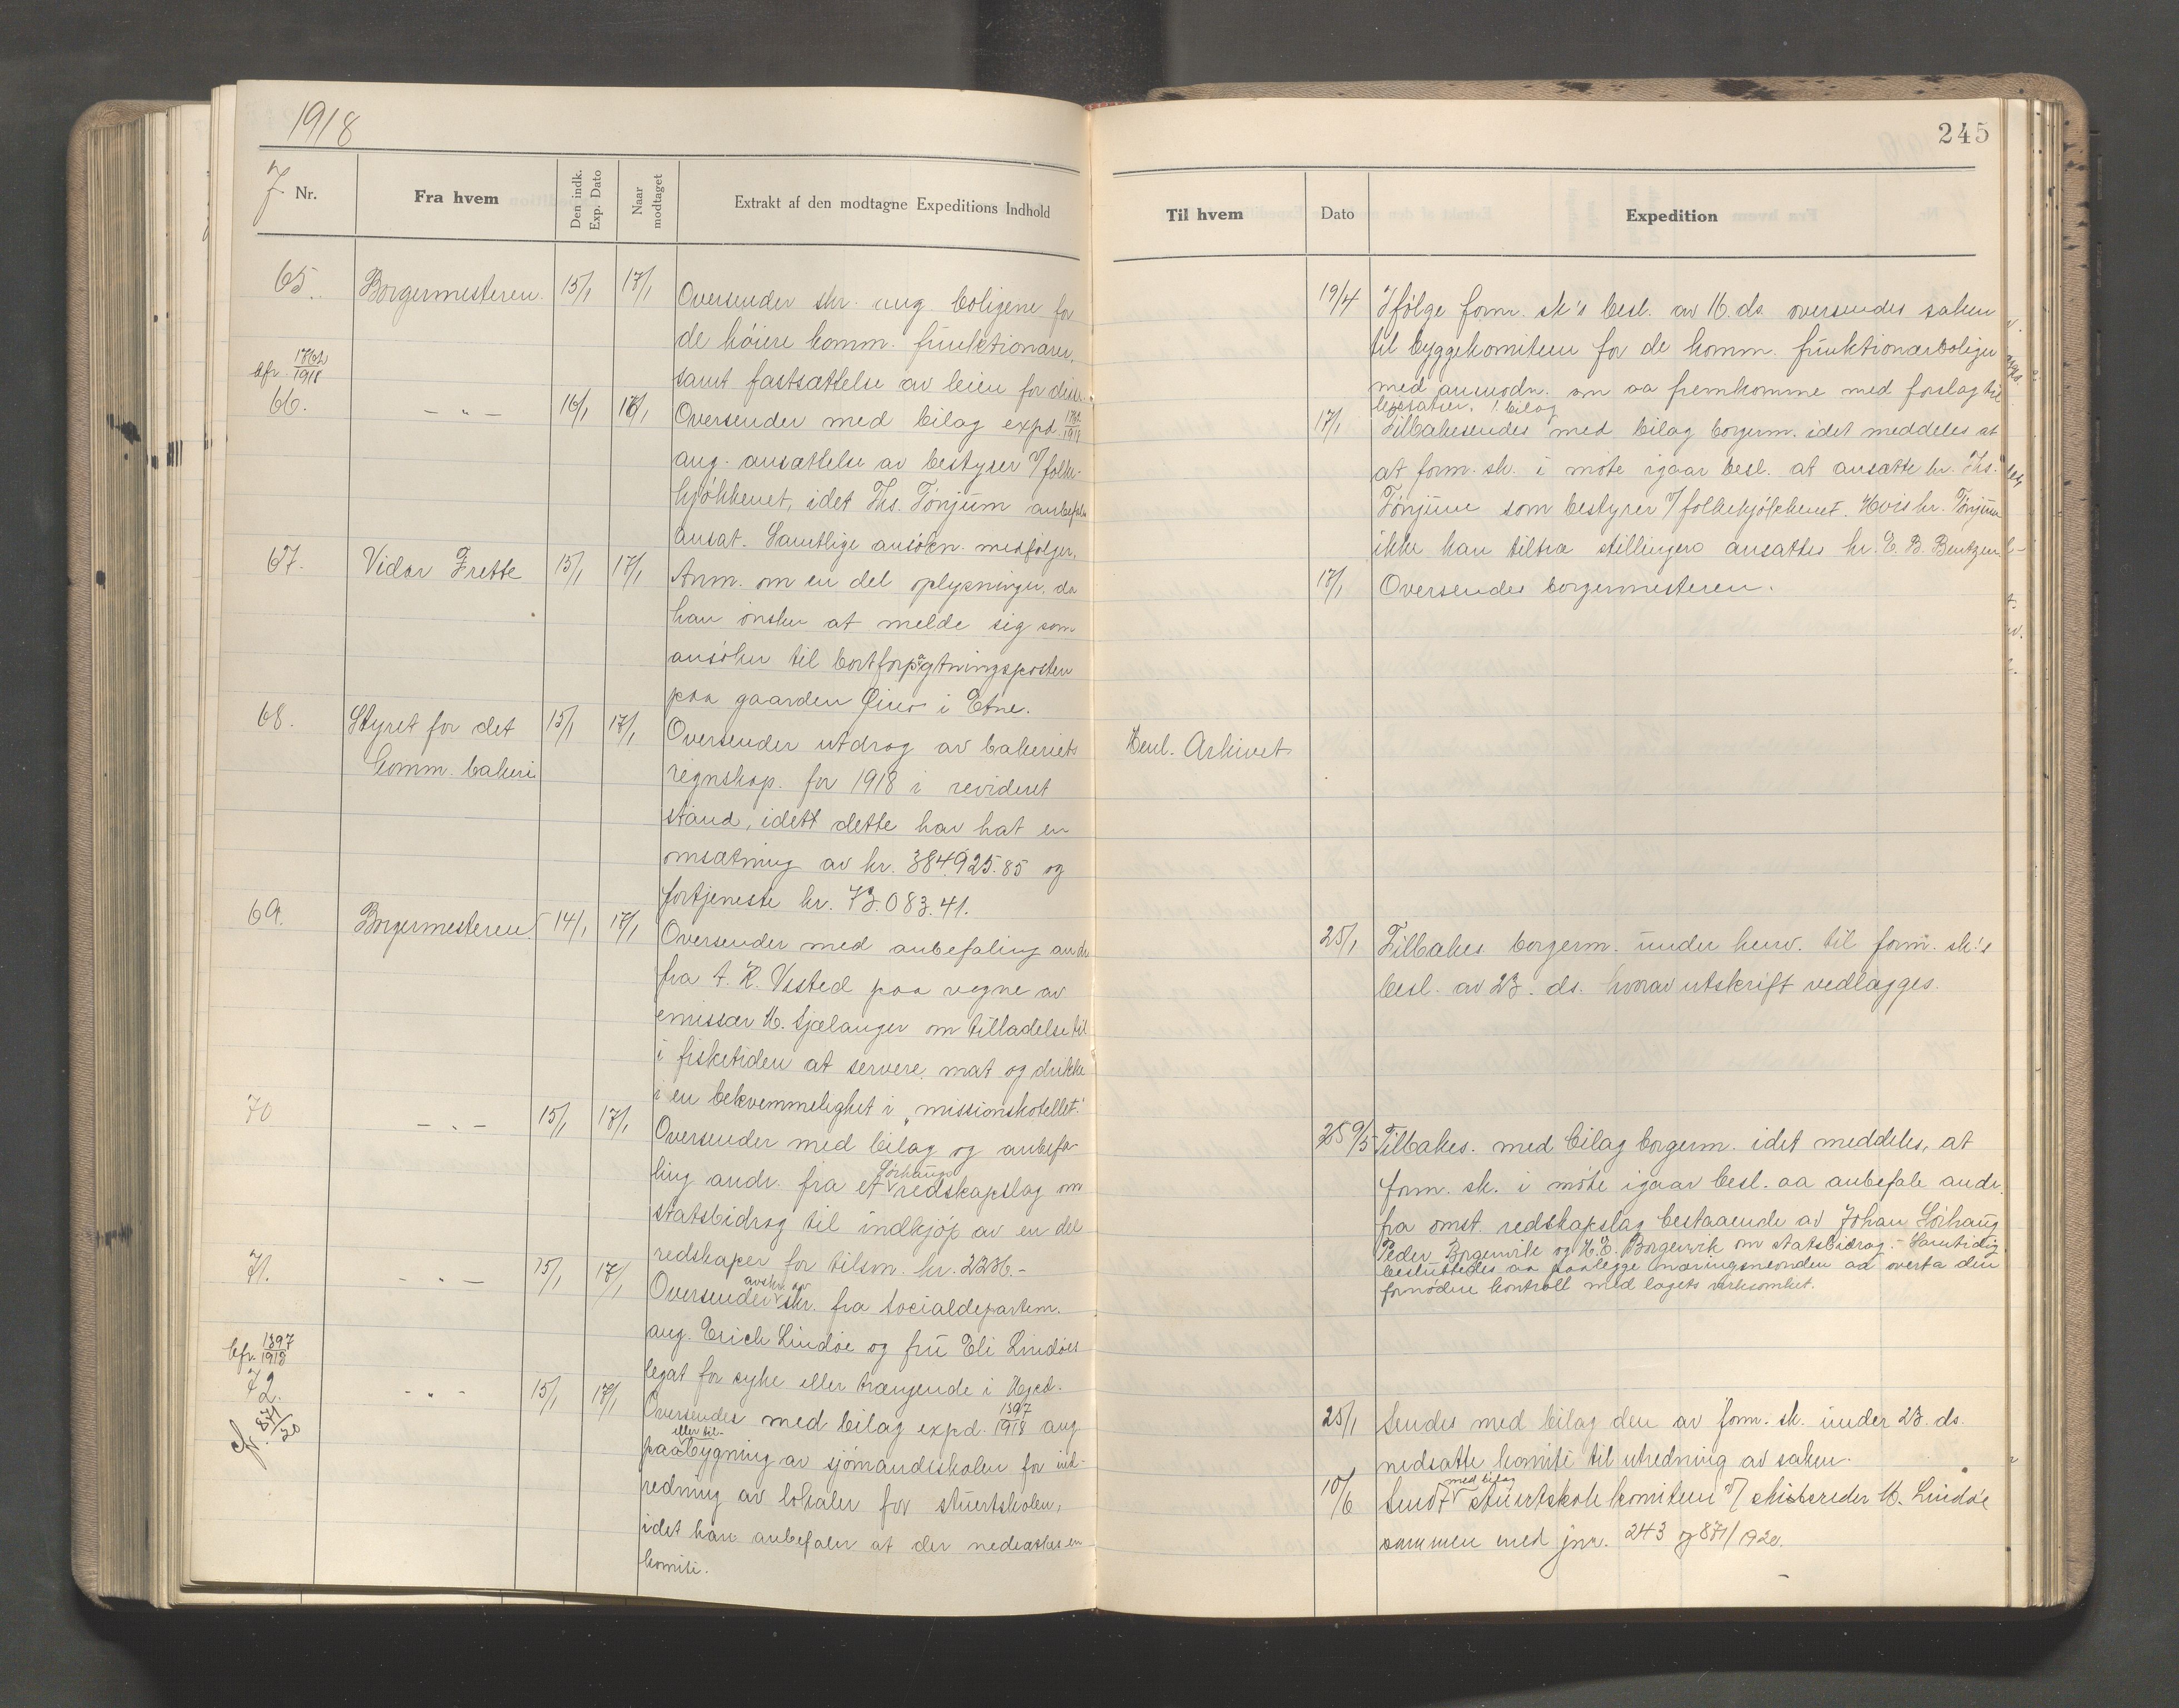 1918
J. Nr.
Fra hvem
Den indk. Exp. Dato
Naar modtaget
Extrakt af den modtagne Expeditions Indhold
65.
Borgermesteren.
15/1
17/1
Oversender skr. ang. boligene for
de høiere komm. funktionærer,
samt fastsættelse av leien for disse.
cfr. 1762/1918
66.
- " -
16/1
17/1
Oversender med bilag expd. 1762/1918
ang. ansættelse av bestyrer v/ folke-
kjøkkenet, idet Ths. Tønjum anbefales
ansat. Samtlige ansøkn. medfølger.
67.
Vidar Frette
15/1
17/1
Anm. om en del oplysninger, da
han ønsker at melde sig som
ansøker til bortforpagtningsposten
paa gaarden i Etne.
68.
Styret for det
komm. bakeri
15/1
17/1
Oversender utdrag av bakeriets
regnskap for 1918 i revideret
stand, idett dette har hat en
omsætning av kr. 384.925.85 og
fortjeneste kr. 73.083.41.
69.
Borgermesteren.
14/1
17/1
Oversender med anbefaling andr.
fra A. R. Visted paa vegne av
emissær M. Sjælanger om tilladelse til
i fisketiden at servere mat og drikke
i en bekvemmelighet i "missionshotellet."
70
- " -
15/1
17/1
Oversender med bilag og anbefa-
ling andr. fra et Sørhaugs redskapslag om
statsbidrag til indkjøp av en del
redskaper for tilsm. kr. 2236.-
71.
- " -
15/1
17/1
Oversender avskr. av skr. fra Socialdepartem.
ang. Erich Lindøe og fru Eli Lindøes
legat for syke eller trængende i Hgsd.
cfr. 1397/1918
72.
cfr. 871/20
- " -
15/1
17/1
Oversendes med bilag expd. 1397/1918 ang
paa eller til- bygning av sjømandsskolen for ind-
redning av lokaler for stuertskolen,
idet han anbefaler at der nedsættes en
komite.
245
Til hvem
Dato
Expedition
19/4
Ifølge form. sk's besl. av 16. ds. oversendes saken
til byggekomiteen for de komm. funktionærboliger
med anmodn. om aa fremkomme med forslag til
leiesatser. 1 bilag
17/1
Tilbakesendes med bilag borgerm. idet meddeles at
at form. sk. i møte igaar besl. at ansætte hr. Ths.
Tønjum som bestyrer v/ folkekjøkkenet. Hvis hr. Tønjum
ikke kan tiltræ stillingen ansættes hr. E. B. Bentzen
17/1
Oversendes borgermesteren.
Henl. Arkivet
25/1
Tilbakes borgerm. under henv. til form. sk's
besl. av 23. ds. hvorav utskrift vedlægges.
25 9/5
Tilbakes. med bilag borgerm. idet meddeles, at
form. sk. i møte igaar besl. aa anbefale andr.
fra omst. redskapslag bestaaende av Johan Sørhaug
Peder Borgenvik og H. E. Borgenvik om statsbidrag. - Samtidig
besluttedes aa paalegge næringsnevnden aa overta den
fornødne kontroll med lagets virksomhet.
25/1
Sendes med bilag den av form. sk. under 23. ds.
nedsatte komite til utredning av saken.
10/6
Sendt med bilag Stuertskolekomiteen v/ skibsreder M. Lindøe
sammen med jnr. 243 og 871/1920.